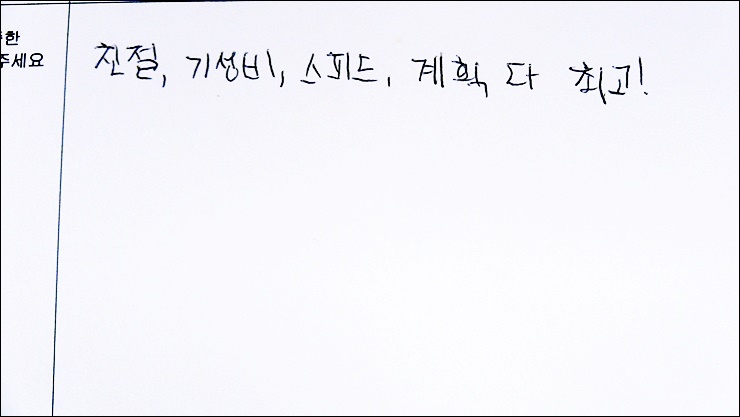 한
주세요
친절, 기성비, 스피드, 계획, 다 최고!